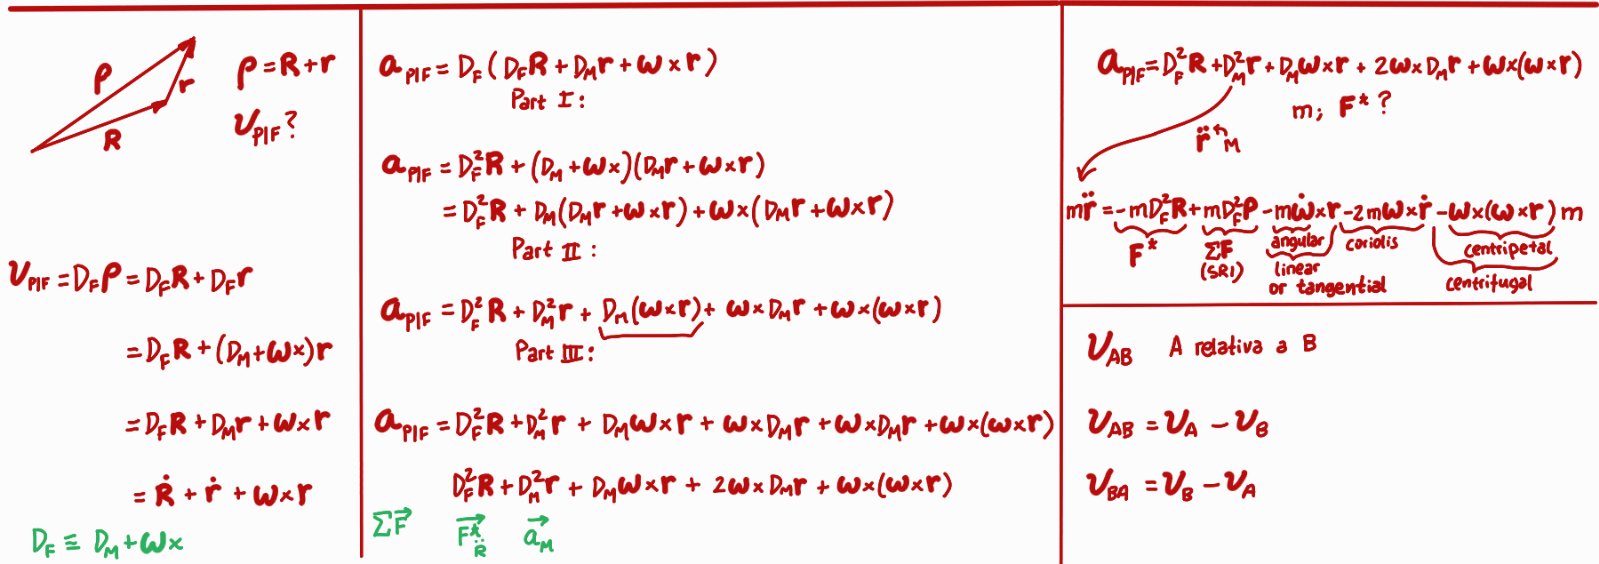 ρ = R + r
ρ
r
R
v_P|F ?
v_P|F = D_F ρ = D_F R + D_F r
= D_F R + (D_M + ω×) r
= D_F R + D_M r + ω × r
= Ṙ + ṙ + ω × r
D_F ≡ D_M + ω ×
a_P|F = D_F ( D_F R + D_M r + ω × r )
Part I :
a_P|F = D_F² R + (D_M + ω ×)(D_M r + ω × r)
= D_F² R + D_M (D_M r + ω × r) + ω × (D_M r + ω × r)
Part II :
a_P|F = D_F² R + D_M² r + D_M (ω × r) + ω × D_M r + ω × (ω × r)
Part III :
a_P|F = D_F² R + D_M² r + D_M ω × r + ω × D_M r + ω × D_M r + ω × (ω × r)
D_F² R + D_M² r + D_M ω × r + 2ω × D_M r + ω × (ω × r)
ΣF⃗ F⃗*_R̈ a⃗_M
a_P|F = D_F² R + D_M² r + D_M ω × r + 2ω × D_M r + ω × (ω × r)
m ; F* ?
r̈ ↰ M
m r̈ = - m D_F² R + m D_F² ρ - m ω̇ × r - 2 m ω × ṙ - ω × (ω × r) m
F*
ΣF
(SRI)
angular
linear
or tangential
coriolis
centripetal
centrifugal
v_AB A relativa a B
v_AB = v_A - v_B
v_BA = v_B - v_A